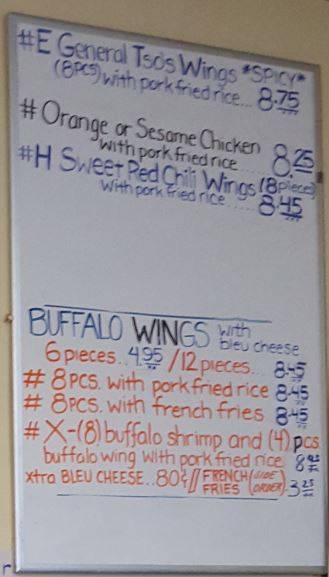 #E General Tso's Wings *SPICY*
(8pcs) with pork fried rice... 8.75
# Orange or Sesame Chicken
with pork fried rice 8.25
#H Sweet Red Chili Wings (8 pieces)
with pork fried rice..... 8.45
BUFFALO WINGS with
bleu cheese
6 pieces.. 4.95 / 12 pieces... 8.45
# 8 PCS. with pork fried rice 8.45
# 8 PCS. with french fries 8.45
# X-(8) buffalo shrimp and (4) pcs
buffalo wing with pork fried rice
xtra BLEU CHEESE.. 80¢ // FRENCH (SIDE
FRIES ORDER). 3.25